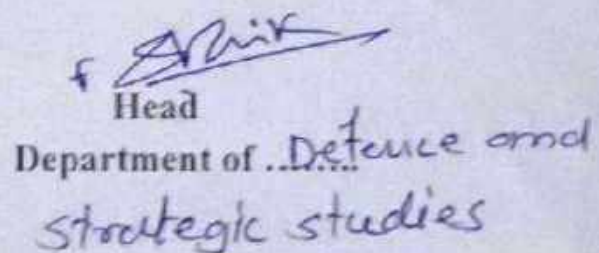 Head
Department of ......... Defence and
strategic studies